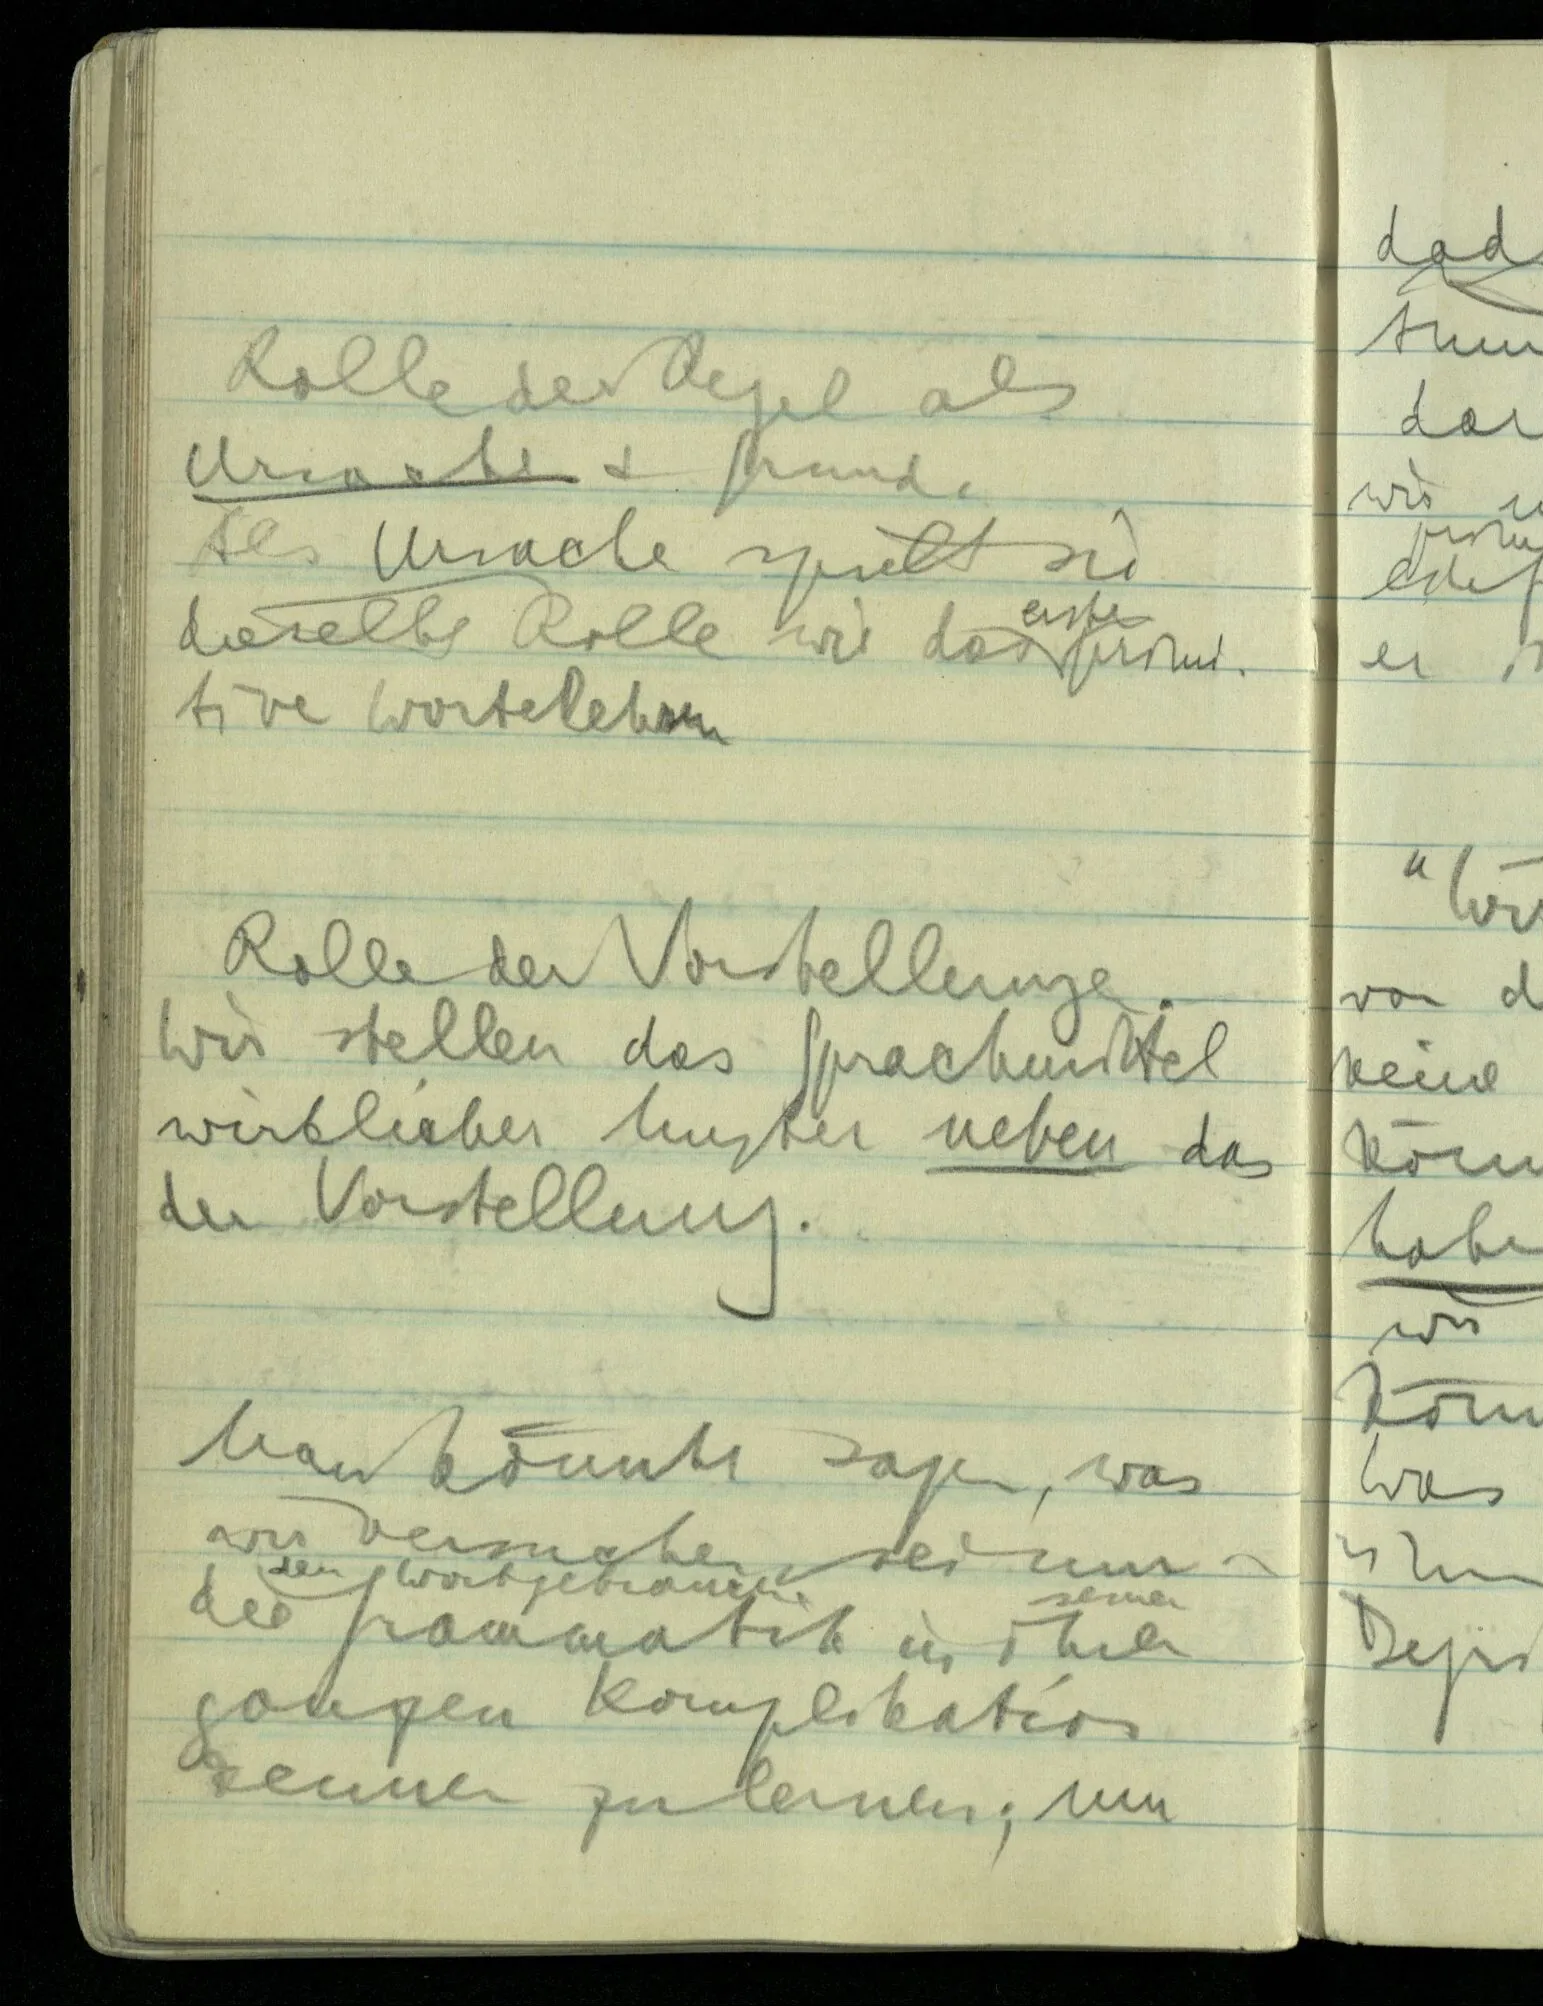 Rolle der Regel als
Ursache & Grund.
Als Ursache spielt sie
dieselbe Rolle wie das erste primi-
tive Wortelehren
Rolle der Vorstellunge.
Wir stellen das Sprachmittel
wirklicher Muster neben das
der Vorstellung.
Man könnte sagen, was
wir versuchen, sei nur
den Wortgebrauch seiner
die Grammatik in ihrer
ganzen Komplikation
kennen zu lernen; um
dad
dar
wie
er
"Wir
von d
keine
könn
habe
wir
könn
Was